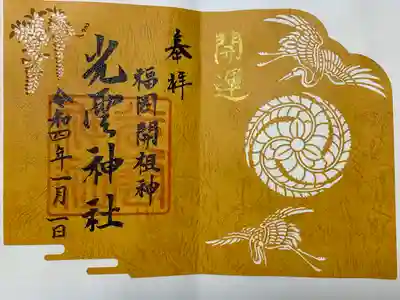 開運
奉拝
福岡開祖神
光雲神社
令和四年一月一日